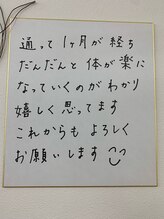 通って1ヶ月が経ち
だんだんと体が楽に
なっていくのがわかり
嬉しく思ってます
これからもよろしく
お願いします